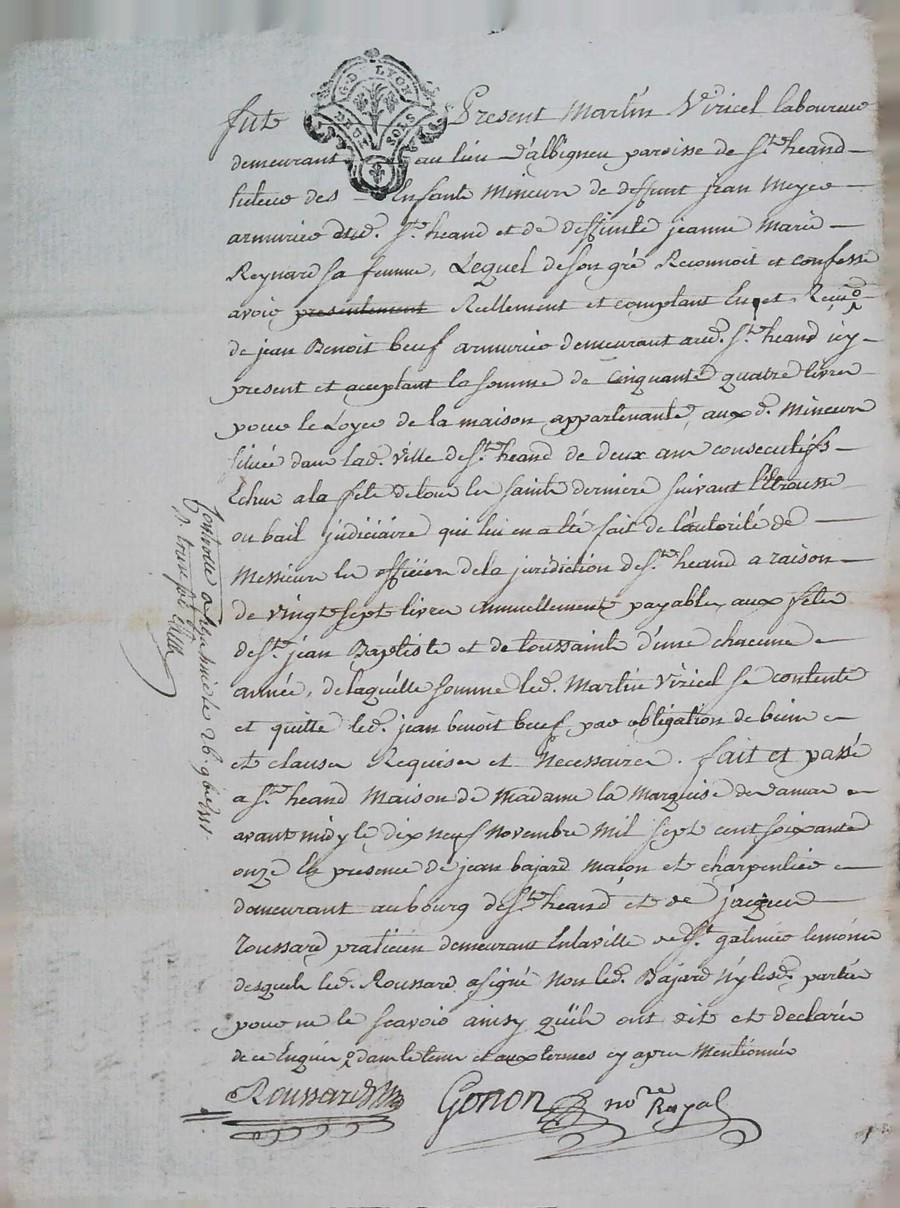 G. D LYON
DEUX SOLS
fute Present Martin Viricel laboureur
demeurant au lieu d'albigneu paroisse de St. heand
tuteur des Enfants Mineurs de deffunt jean Meyer
armurier dud. St. heand et de deffunte jeanne Marie
Reynard sa femme, Lequel de son gré Reconnoit et confesse
avoir presentement Réellement et comptant Eu et Reçu
de jean Benoit beuf armurier demeurant aud. St. heand icy
present et aceptant la somme de cinquante quatre livres
pour le Loyer de la maison appartenante, aux d. Mineurs
situéé dans lad. ville de St. heand de deux ans consecutifs
Echus a la féte de tous les saints derniere suivant l'étrousse
ou bail judiciaire qui lui en a été fait de l'autorité de
Messieurs les officiers de la jurisdiction de St. heand a raison
de vingt sept livres Annuellement payables, aux fétes
de St. jean Baptiste et de toussaints d'une chacune
année, de laquélle somme led. Martin Viricel se contente
et quitte led. jean benoit beuf par obligation de biens
et clauses Requises et Necessaires. fait et passé
a St. heand Maison de Madame la Marquise de vamas
avant midy le dix neuf Novembre Mil sept cent soixante
onze En presence de jean bajard macon et charpentier
demeurant au bourg de St. heand et de jacques
Roussard praticien demeurant En la ville de St. galmier temoins
desquels led. Roussard a signé Non led. Bajard N'y lesd. parties
pour ne le scavoir ainsy qu'ils ont dit et declarés
de ce Enquis dans le tems et aux termes cy apres Mentionnés
Roussard Gonon nore Royal
Controllé a le 26. 9bre 1771
R. treize sols